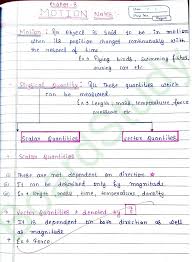 Chapter-8
MOTION Notes
Motion : An object is said to be in motion
when its position changed continuously with
the record of time.
Ex → Flying birds, swimming fishes,
moving car etc.
Physical Quantity : All those quantities which
can be measured
Ex → Length, mass, temperature, force
pressure etc
Scalar Quantities Vector Quantities
→ Scalar Quantities
(i) These are not dependent on direction
(ii) It can be described only by magnitude
(iii) Ex → Length, mass, time, temperature, density
→ Vector Quantities → denoted by
It is dependent on both direction as well
as magnitude
Ex → Force